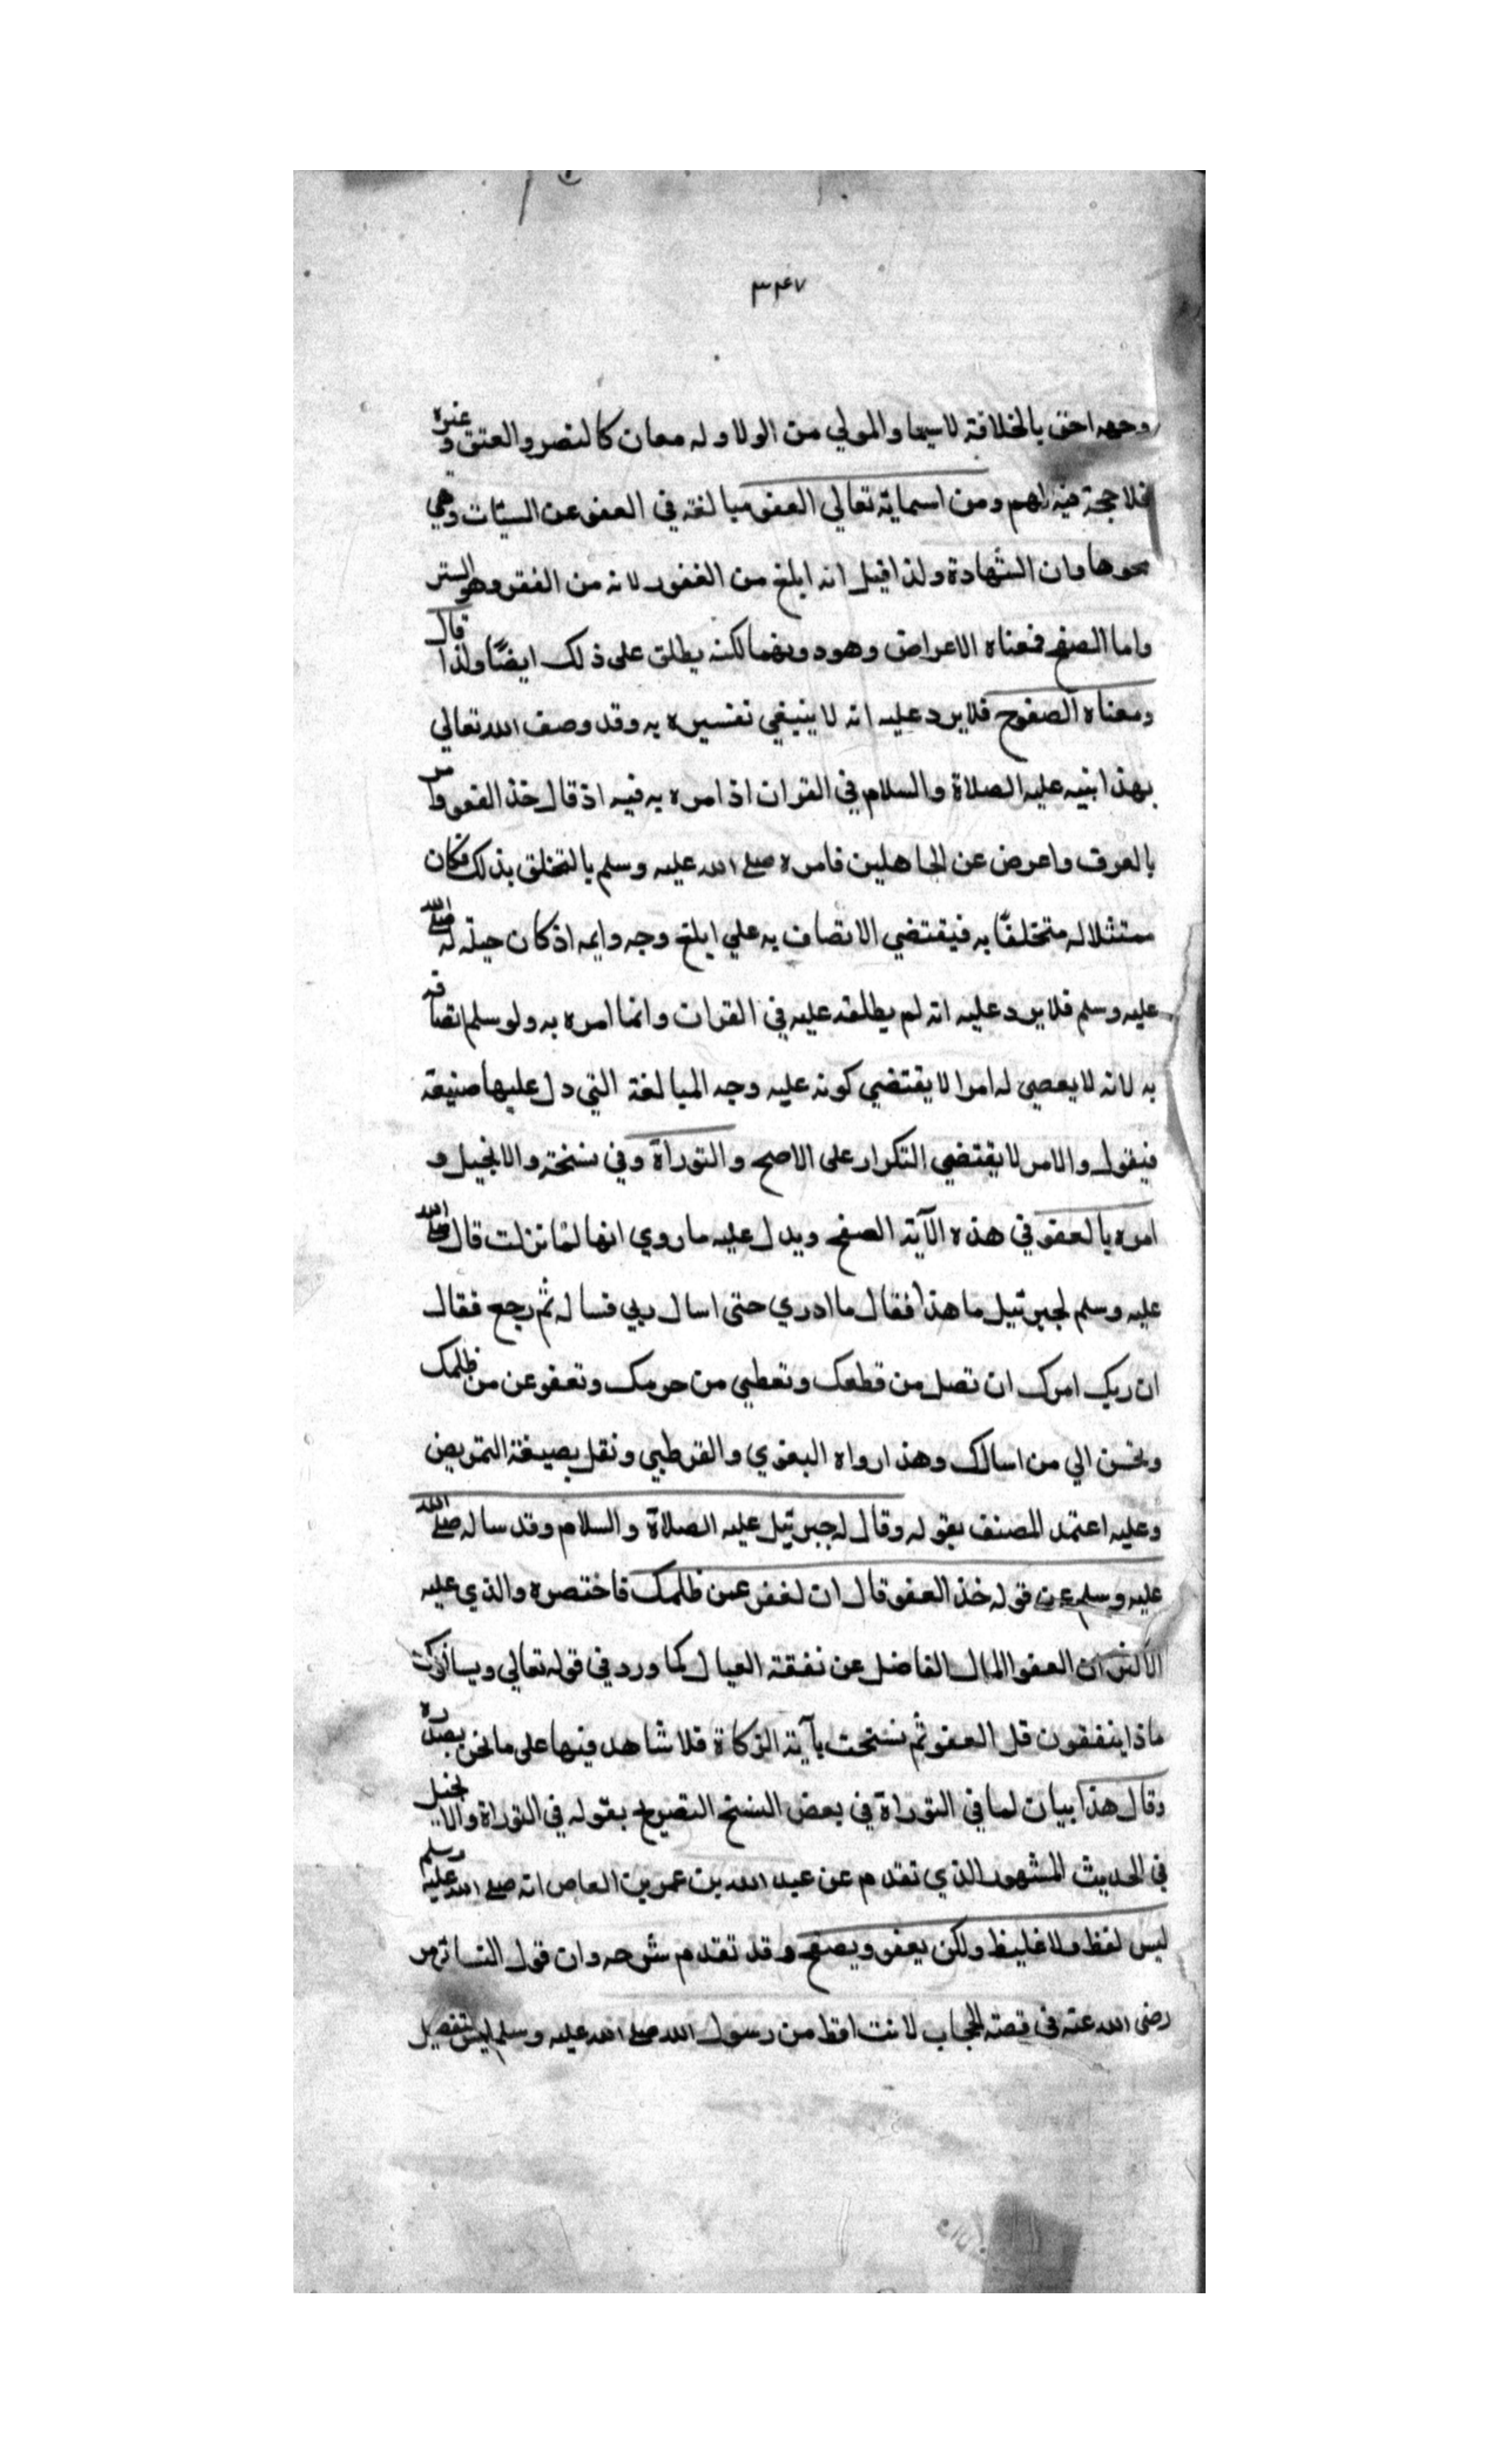 ٣٤٧
وجهه احق بالخلافة لاسيما والمولي من الولا وله معان كالنصر والعتق وغيره
فلا حجة فيه لهم ومن اسمايه تعالي العفو مبالغة في العفو عن السيئات وهي
محوها وان الشهادة ولذا قيل انه ابلغ من الغفور لانه من الغفر وهو الستر
واما الصفح فمعناه الاعراض وهو دونهما لكنه يطلق على ذلك ايضًا ولذا قال
ومعناه الصفوح فلا يرد عليه انه لا ينبغي تفسيره به وقد وصف الله تعالي
بهذا نبيه عليه الصلاة والسلام في القران اذ امره به فيه اذ قال خذ العفو وامر
بالعرف واعرض عن الجاهلين فامره صلى الله عليه وسلم بالتخلق بذلك فكان
ممتثلا له متخلقًا به فيقتضي الاتصاف به علي ابلغ وجه وايمه اذ كان جبلة له صلى الله
عليه وسلم فلا يرد عليه انه لم يطلقه عليه في القران وانما امره به ولو سلم اتصافه
به لانه لا يعصي له امرا لا يقتضي كونه عليه وجه المبالغة التي دل عليها صنيعة
فيقول والامر لا يقتضي التكرار على الاصح والتوراة وفي نسخة والانجيل و
امره بالعفو في هذه الآية الصفح ويدل عليه ما روي انها لمّا نزلت قال صلى الله
عليه وسلم لجبرئيل ما هذا فقال ما ادري حتى اسال ربي فساله ثم رجع فقال
ان ربك امرك ان تصل من قطعك وتعطي من حرمك وتعفو عن من ظلمك
وتحسن الي من اسالك وهذا رواه البغوي والقرطبي ونقل بصيغة التمريض
وعليه اعتمد المصنف بقوله وقال له جبرئيل عليه الصلاة والسلام وقد ساله صلى الله
عليه وسلم عن قوله خذ العفو قال ان تغفر عمن ظلمك فاختصره والذي عليه
الاكثر ان العفو المال الفاضل عن نفقة العيال كما ورد في قوله تعالي ويسالونك
ماذا ينفقون قل العفو ثم نسخت بآية الزكاة فلا شاهد فيها على ما نحن بصدره
وقال هذا بيان لما في التوراة في بعض النسخ التصريح بقوله في التوراة والانجيل
في الحديث المشهور الذي تقدم عن عبد الله بن عمرو بن العاص انه صلى الله عليه وسلم
ليس لفظ ولا غليظ ولكن يعفو ويصفح وقد تقدم شرحه وان قول النسا لعمر
رضى الله عنه في قصة الحجاب لانت افظ من رسول الله صلى الله عليه وسلم ليس لتفضيل